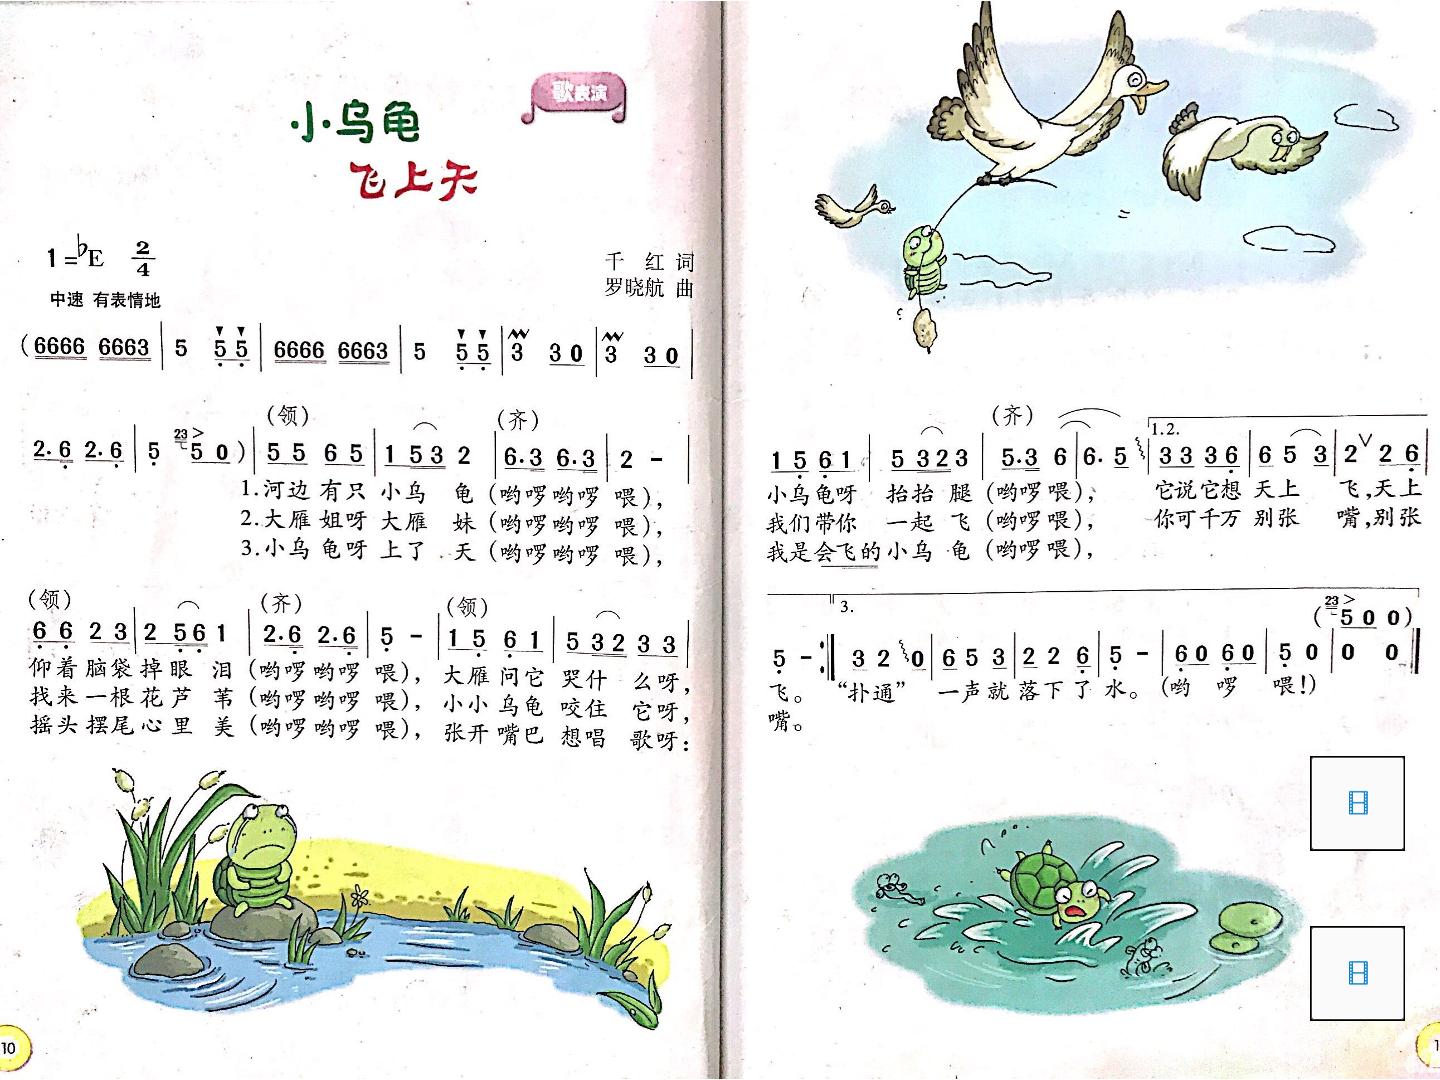 歌表演
小乌龟
飞上天
1=♭E 2/4
千 红 词
中速 有表情地
罗晓航 曲
(6666 6663 | 5 5 5 | 6666 6663 | 5 5 5 | 3 3 0 | 3 3 0 |
(领) (齐)
2·6 2·6 | 5 23 5 0) | 5 5 6 5 | 1 5 3 2 | 6·3 6·3 | 2 - |
1.河边 有只 小乌 龟 (哟啰 哟啰 喂),
2.大雁 姐呀 大雁 妹 (哟啰 哟啰 喂),
3.小乌 龟呀 上了 天 (哟啰 哟啰 喂),
(领) (齐) (领)
6 6 2 3 | 2 5 6 1 | 2·6 2·6 | 5 - | 1 5 6 1 | 5 3 2 3 3 |
仰着 脑袋 掉眼 泪 (哟啰 哟啰 喂), 大雁 问它 哭什 么呀,
找来 一根 花芦 苇 (哟啰 哟啰 喂), 小小 乌龟 咬住 它呀,
摇头 摆尾 心里 美 (哟啰 哟啰 喂), 张开 嘴巴 想唱 歌呀:
10
(齐)
1.2.
1 5 6 1 | 5 3 2 3 | 5·3 6 | 6· 5 | 3 3 3 6 | 6 5 3 | 2 V 2 6 |
小乌龟呀 抬抬 腿 (哟啰 喂), 它说它想 天上 飞,天上
我们带你 一起 飞 (哟啰 喂), 你可千万 别张 嘴,别张
我是会飞的 小乌 龟 (哟啰 喂),
3.
(23 5 0 0)
5 - :| 3 2 0 | 6 5 3 | 2 2 6 | 5 - | 6 0 6 0 | 5 0 | 0 0 ||
飞。 “扑通” 一声就 落下了 水。 (哟 啰 喂!)
嘴。